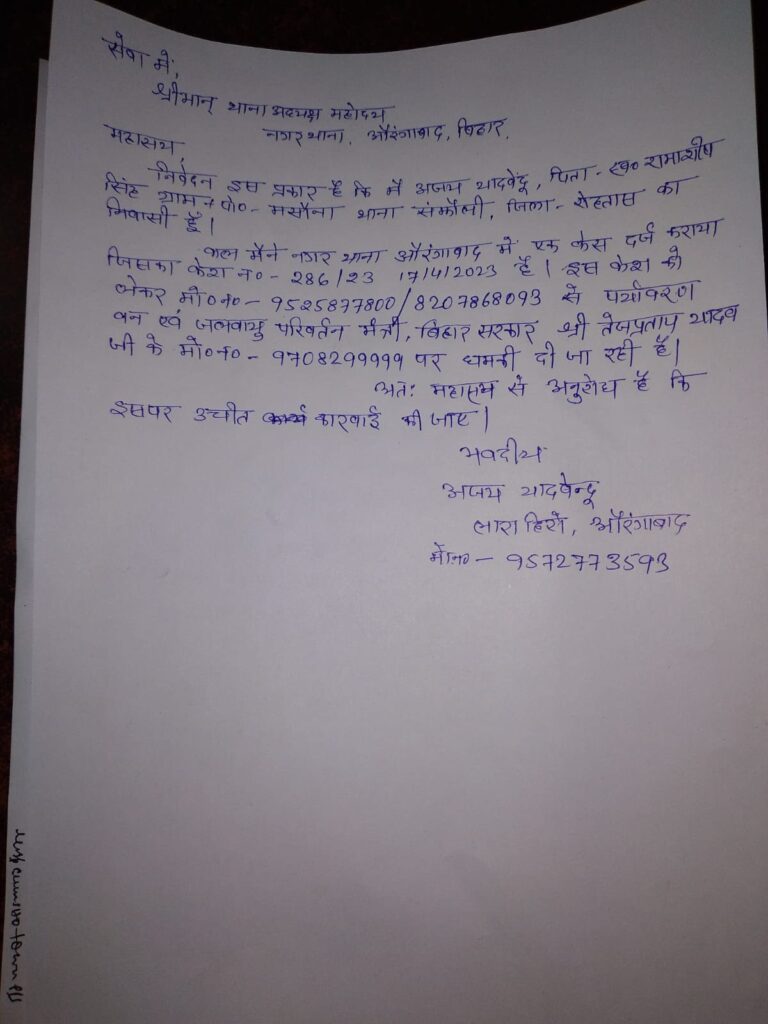 सेवा में,
श्रीमान् थाना अध्यक्ष महोदय
नगर थाना, औरंगाबाद, बिहार,
महाशय
निवेदन इस प्रकार है कि मैं अजय यादवेंदू, पिता - स्व० रामाशीष
सिंह ग्राम + पो० - मसौना थाना संझौली, जिला - रोहतास का
निवासी हूँ।
कल मैंने नगर थाना औरंगाबाद में एक केस दर्ज कराया
जिसका केश न० - 286/23 17/4/2023 है। इस केश को
लेकर मो०न० - 9525877800/8207868093 से पर्यावरण
वन एवं जलवायु परिवर्तन मंत्री, बिहार सरकार श्री तेजप्रताप यादव
जी के मो०न० - 9708299999 पर धमकी दी जा रही है।
अतः महाशय से अनुरोध है कि
इसपर उचीत कारवाई की जाए।
भवदीय
अजय यादवेन्दू
लारा हिरो, औरंगाबाद
मो०न० - 9572773593